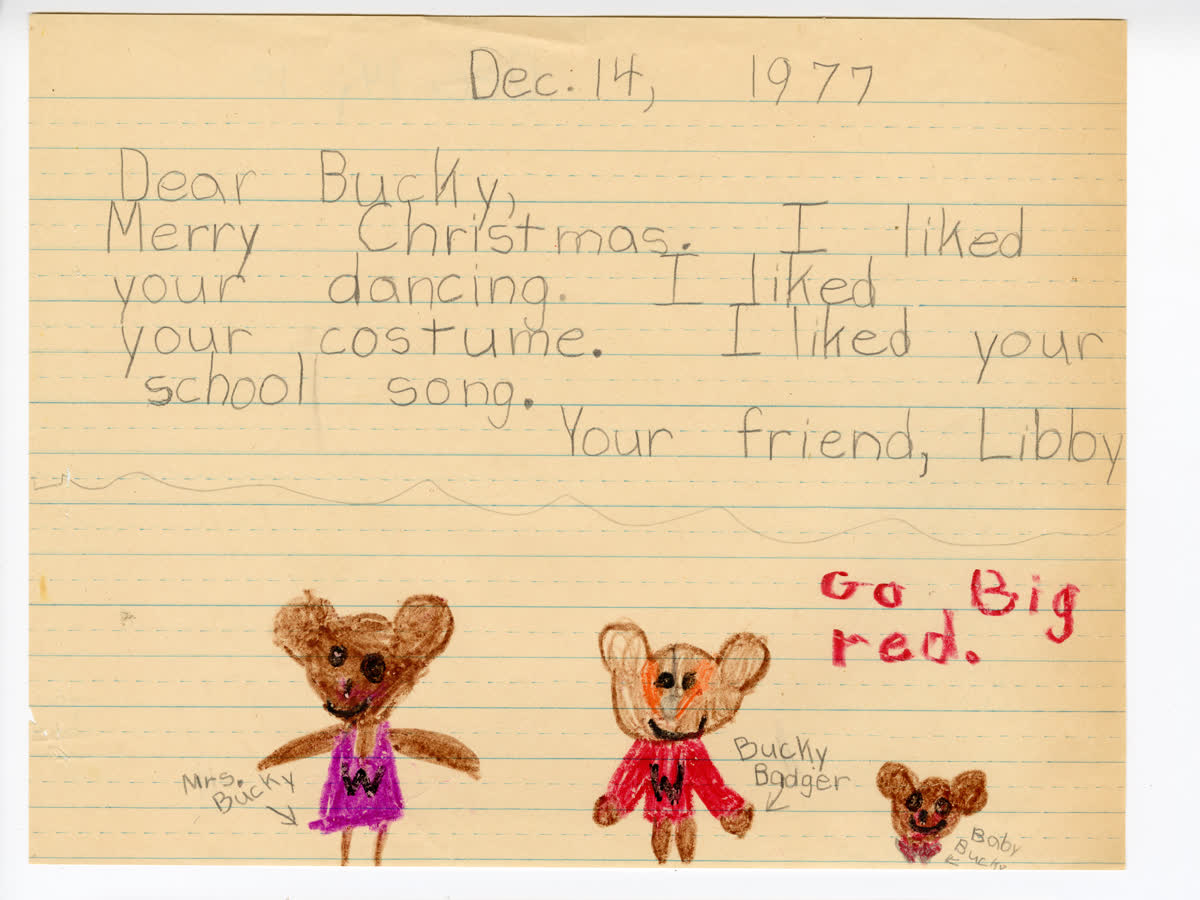 Dec. 14, 1977
Dear Bucky,
Merry Christmas. I liked
your dancing. I liked
your costume. I liked your
school song.
Your friend, Libby
Go Big
red.
W
W
Mrs.
Bucky
Bucky
Badger
Baby
Bucky